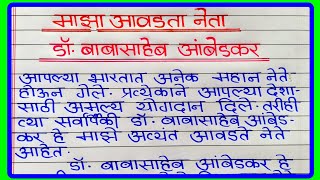 माझा आवडता नेता
डॉ. बाबासाहेब आंबेडकर
आपल्या भारतात अनेक महान नेते
होऊन गेले. प्रत्येकाने आपल्या देशा-
साठी अमूल्य योगदान दिले. तरीही
त्या सर्वांपैकी डॉ. बाबासाहेब आंबेड-
कर हे माझे अत्यंत आवडते नेते
आहेत.
डॉ. बाबासाहेब आंबेडकर हे